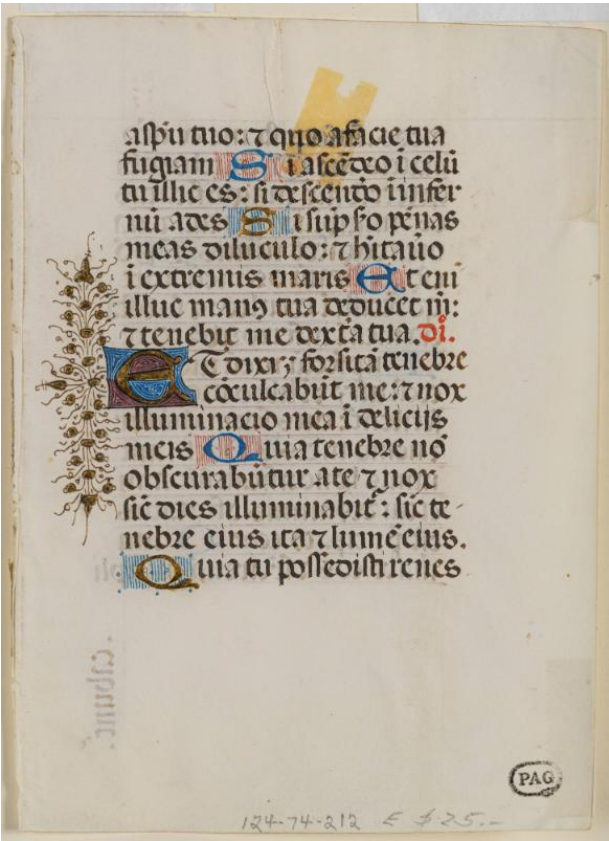 aspũ tuo: ⁊ quo a facie tua
fugiam Si ascẽdeo ĩ celũ
tu illic es: si descendo ĩ infer
nũ ades Si sũp̃so pẽnas
meas diluculo: ⁊ h̃itauo
ĩ extremis maris Et eni
illuc manꝰ tua deducet m̃:
⁊ tenebit me dextã tua. di.
ET dixiꝫ forsitã tenebre
cõculcabũt me: ⁊ nox
illuminacio mea ĩ delicijs
meis Quia tenebre nõ
obscurabũtur a te ⁊ nox
sic̃ dies illuminabit̃: sic̃ te-
nebre eius ita ⁊ lumẽ eius.
Quia tu possedisti renes
cabunt.
PAG
124-74-212 E $25.-